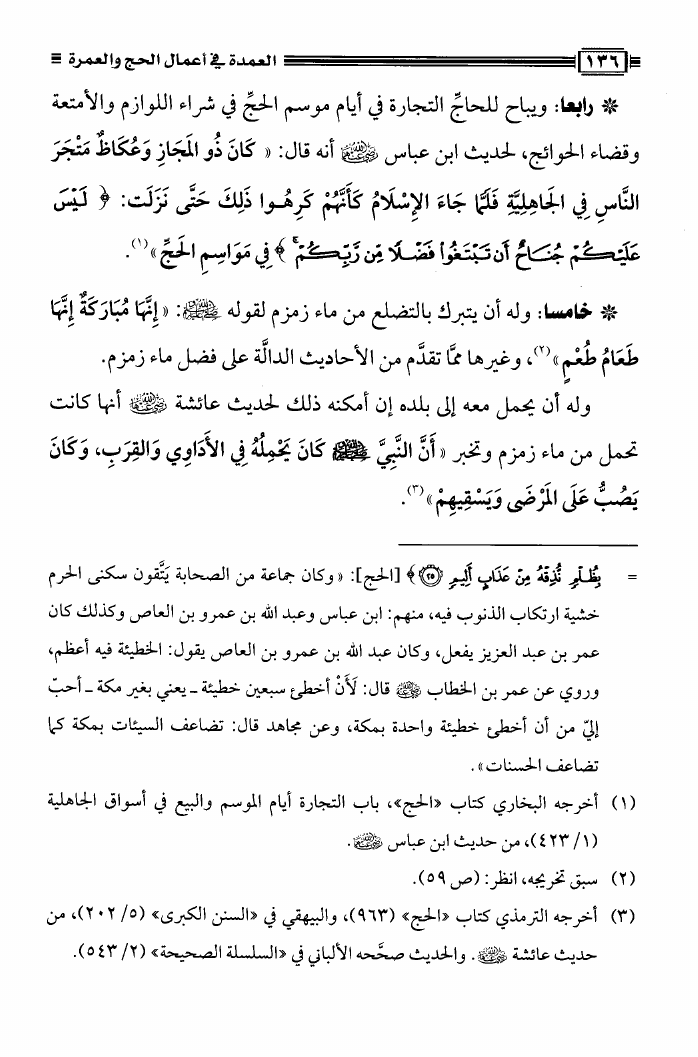 ١٣٦ العمدة في أعمال الحج والعمرة
* رابعا: ويباح للحاجِّ التجارة في أيام موسم الحجِّ في شراء اللوازم والأمتعة
وقضاء الحوائج، لحديث ابن عباس رضي الله عنهما أنه قال: «كَانَ ذُو المَجَازِ وَعُكَاظٌ مَتْجَرَ
النَّاسِ فِي الجَاهِلِيَّةِ فَلَمَّا جَاءَ الإِسْلَامُ كَأَنَّهُمْ كَرِهُوا ذَلِكَ حَتَّى نَزَلَت: ﴿ لَيْسَ
عَلَيْكُمْ جُنَاحٌ أَن تَبْتَغُوا۟ فَضْلًا مِّن رَّبِّكُمْ ۚ ﴾ فِي مَوَاسِمِ الحَجِّ»(١).
* خامسا: وله أن يتبرك بالتضلع من ماء زمزم لقوله ﷺ: «إِنَّهَا مُبَارَكَةٌ إِنَّهَا
طَعَامُ طُعْمٍ»(٢)، وغيرها ممَّا تقدَّم من الأحاديث الدالَّة على فضل ماء زمزم.
وله أن يحمل معه إلى بلده إن أمكنه ذلك لحديث عائشة رضي الله عنها أنها كانت
تحمل من ماء زمزم وتخبر «أَنَّ النَّبِيَّ ﷺ كَانَ يَحْمِلُهُ فِي الأَدَاوِي وَالقِرَبِ، وَكَانَ
يَصُبُّ عَلَى المَرْضَى وَيَسْقِيهِمْ»(٣).
= بِظُلْمٍ نُّذِقْهُ مِنْ عَذَابٍ أَلِيمٍ ۝٢٥﴾ [الحج]: «وكان جماعة من الصحابة يَتَّقون سكنى الحرم
خشية ارتكاب الذنوب فيه، منهم: ابن عباس وعبد الله بن عمرو بن العاص وكذلك كان
عمر بن عبد العزيز يفعل، وكان عبد الله بن عمرو بن العاص يقول: الخطيئة فيه أعظم،
وروي عن عمر بن الخطاب رضي الله عنه قال: لَأَنْ أخطئ سبعين خطيئة ـ يعني بغير مكة ـ أحبّ
إليّ من أن أخطئ خطيئة واحدة بمكة، وعن مجاهد قال: تضاعف السيئات بمكة كما
تضاعف الحسنات».
(١) أخرجه البخاري كتاب «الحج»، باب التجارة أيام الموسم والبيع في أسواق الجاهلية
(١/ ٤٢٣)، من حديث ابن عباس رضي الله عنهما.
(٢) سبق تخريجه، انظر: (ص ٥٩).
(٣) أخرجه الترمذي كتاب «الحج» (٩٦٣)، والبيهقي في «السنن الكبرى» (٥/ ٢٠٢)، من
حديث عائشة رضي الله عنها. والحديث صحَّحه الألباني في «السلسلة الصحيحة» (٢/ ٥٤٣).